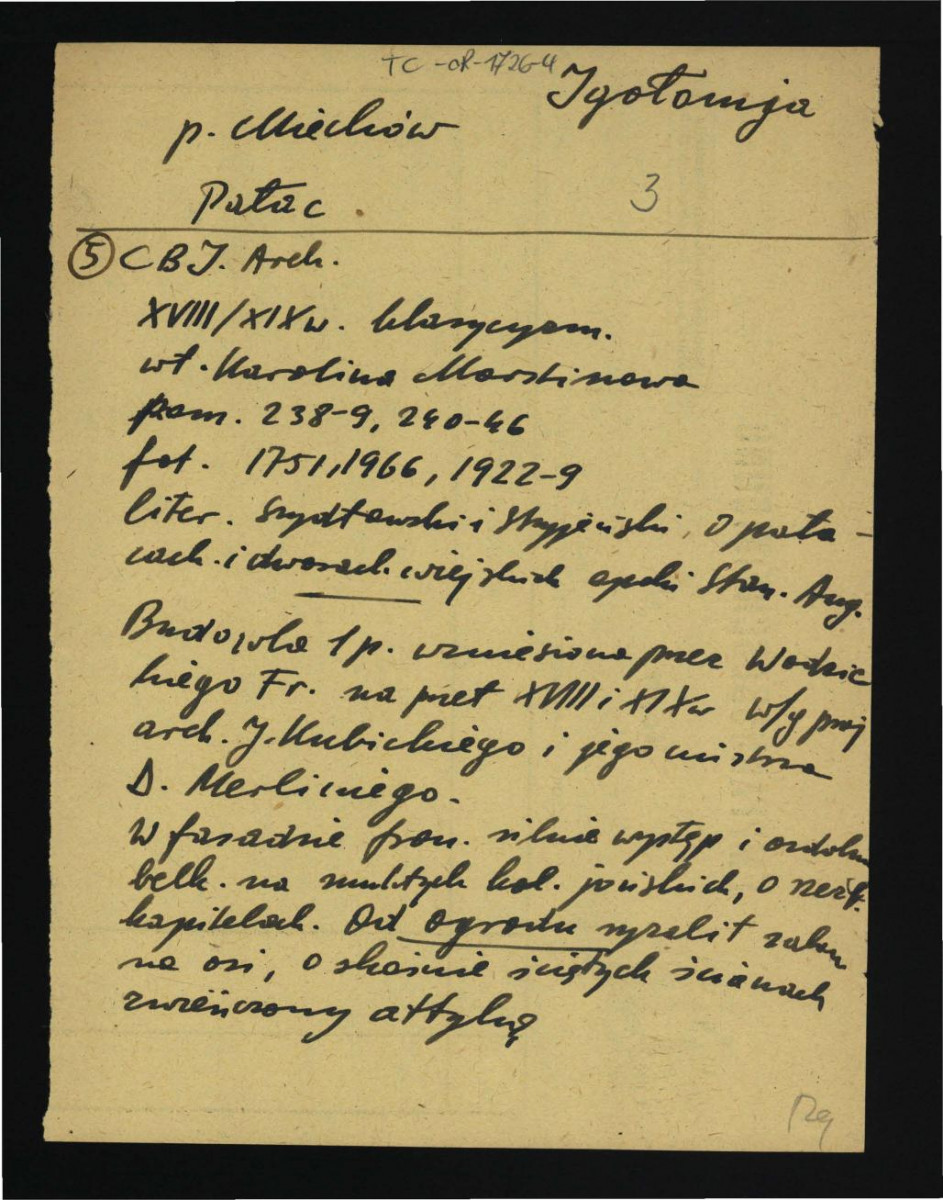 TC-OR-1726-4
Igołomja
p. Miechów
Pałac
3
5 CBJ. Arch.
XVIII/XIX w. klasycyzm.
wł. Karolina Morstinowa
pom. 238-9, 240-46
fot. 1751, 1966, 1922-9
liter. Szydłowski i Stryjeński, O pała-
cach i dworach wiejskich epoki Stan. Aug.
Budowla 1 p. wzniesiona przez Wodzic
kiego Fr. na przeł XVIII i XIX w w/g proj
arch. J. Kubickiego i jego mistrza
D. Merliniego.
W fasadzie fron. silnie występ i ozdobn
belk. na smukłych kol. jońskich, o rzeźb.
kapitelach. Od ogrodu ryzalit załam
na osi, o skośnie ściętych ścianach
zwieńczony attyką